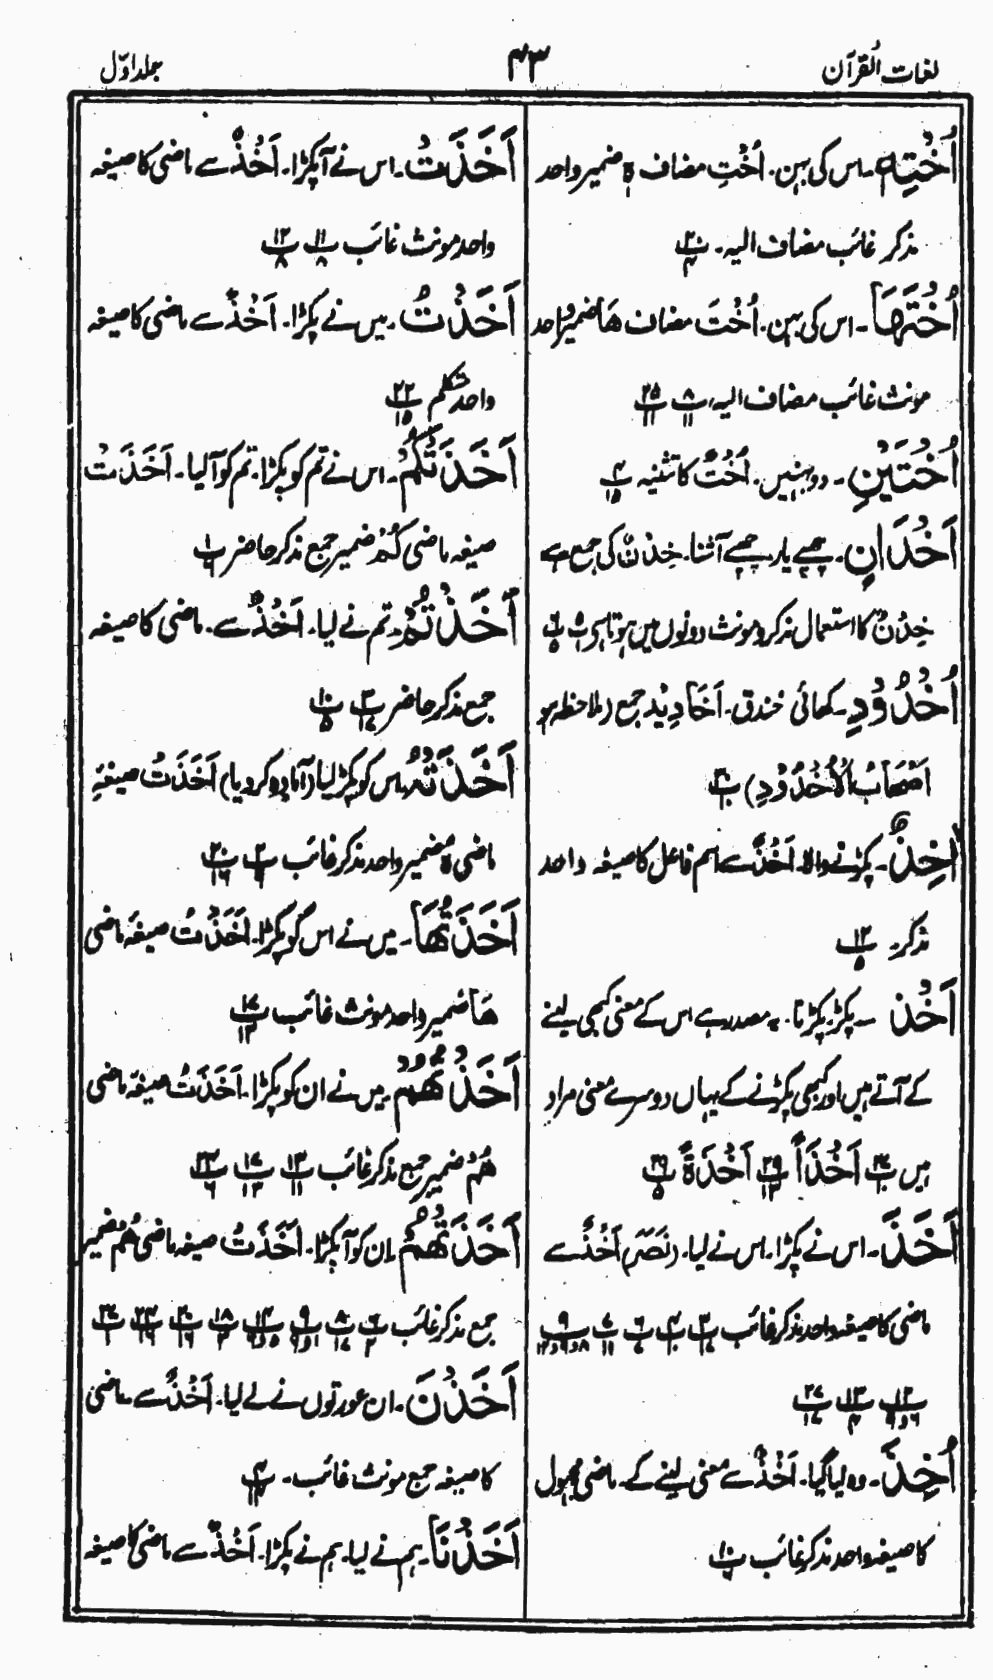 لغات القرآن
۴۳
جلد اوّل
اُخْتِهٖ۔ اس کی بہن۔ اُخْتِ مضاف ہٖ ضمیر واحد
مذکر غائب مضاف الیہ۔
اُخْتَهَا۔ اس کی بہن۔ اُخْتَ مضاف هَا ضمیر واحد
مونث غائب مضاف الیہ
اُخْتَيْنِ۔ دو بہنیں۔ اُخْتٌ کا تثنیہ
اَخْدَانٍ۔ چھپے یار، چھپے آشنا۔ خِدْنٌ کی جمع ہے
خِدْنٌ کا استعمال مذکر و مونث دونوں میں ہوتا ہی
اُخْدُوْدِ۔ کھائی خندق۔ اَخَادِیْد جمع (ملاحظہ ہو
اَصْحَابُ الْاُخْدُوْدِ)
اٰخِذٌ۔ پکڑنے والا۔ اَخْذٌ سے اسم فاعل کا صیغہ واحد
مذکر۔
اَخْذ ۔ پکڑ، پکڑنا۔ یہ مصدر ہے اس کے معنی کبھی لینے
کے آتے ہیں اور کبھی پکڑنے کے یہاں دوسرے معنی مراد
ہیں اَخْذًا اَخْذَةً
اَخَذَ۔ اس نے پکڑا۔ اس نے لیا۔ (نَصَرَ) اَخْذٌ سے
ماضی کا صیغہ واحد مذکر غائب
اُخِذَ۔ وہ لیا گیا۔ اَخْذٌ سے معنی لینے کے۔ ماضی مجہول
کا صیغہ واحد مذکر غائب
اَخَذَتْ۔ اس نے آپکڑا۔ اَخْذٌ سے ماضی کا صیغہ
واحد مونث غائب
اَخَذْتُ۔ میں نے پکڑا۔ اَخْذٌ سے ماضی کا صیغہ
واحد متکلم
اَخَذَتْكُمْ۔ اس نے تم کو پکڑا۔ تم کو آلیا۔ اَخَذَتْ
صیغہ ماضی كُمْ ضمیر جمع مذکر حاضر
اَخَذْتُمْ۔ تم نے لیا۔ اَخْذٌ سے۔ ماضی کا صیغہ
جمع مذکر حاضر
اَخَذَتْهُ۔ اس کو پکڑ لیا (آمادہ کر دیا) اَخَذَتْ صیغہ
ماضی ہٗ ضمیر واحد مذکر غائب
اَخَذْتُهَا۔ میں نے اس کو پکڑا۔ اَخَذْتُ صیغہ ماضی
هَا ضمیر واحد مونث غائب
اَخَذْتُهُمْ۔ میں نے ان کو پکڑا۔ اَخَذْتُ صیغہ ماضی
هُمْ ضمیر جمع مذکر غائب
اَخَذَتْهُمْ۔ ان کو آپکڑا۔ اَخَذَتْ صیغہ ماضی هُمْ ضمیر
جمع مذکر غائب
اَخَذْنَ۔ ان عورتوں نے لے لیا۔ اَخْذٌ سے ماضی
کا صیغہ جمع مونث غائب۔
اَخَذْنَا۔ ہم نے لیا۔ ہم نے پکڑا۔ اَخْذٌ سے ماضی کا صیغہ